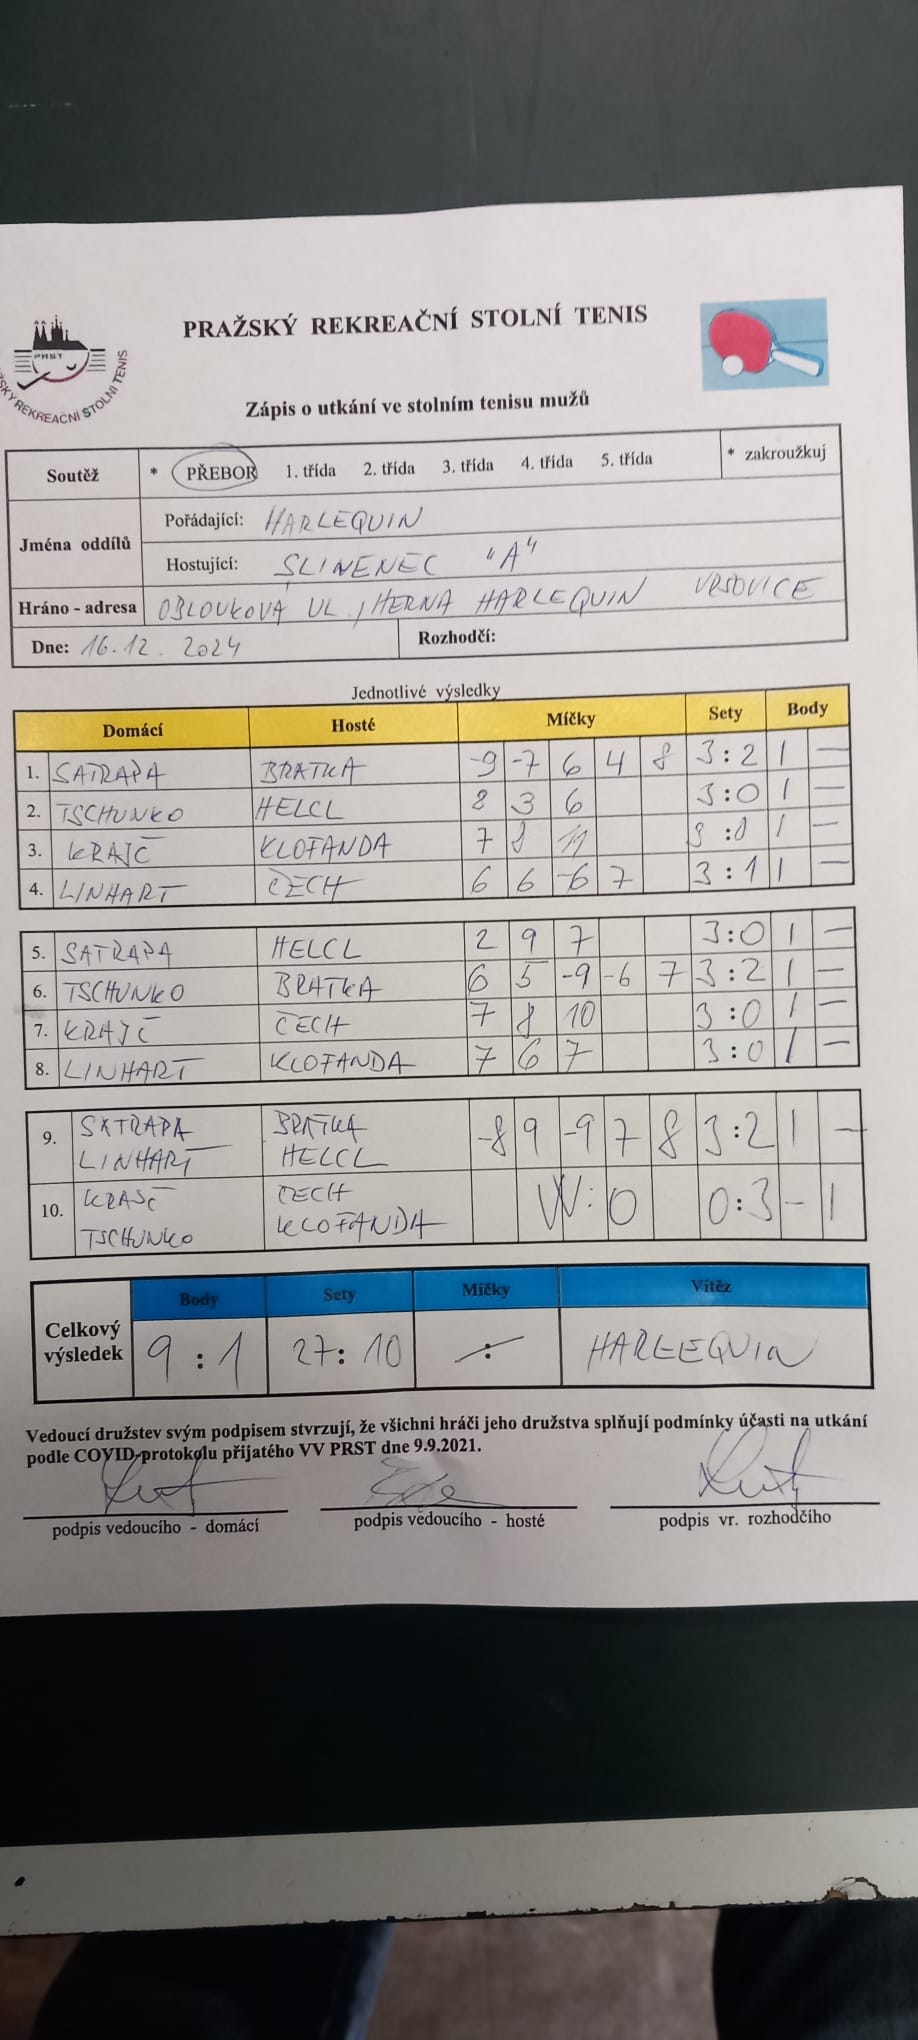 PRAŽSKÝ REKREAČNÍ STOLNÍ TENIS
PRST
Zápis o utkání ve stolním tenisu mužů
Soutěž * PŘEBOR 1. třída 2. třída 3. třída 4. třída 5. třída * zakroužkuj
Jména oddílů
Pořádající: HARLEQUIN
Hostující: SLINENEC "A"
Hráno - adresa OBLOUKOVA UL., HERNA HARLEQUIN VRSOVICE
Dne: 16.12.2024 Rozhodčí:
Jednotlivé výsledky
Domácí Hosté Míčky Sety Body
1. SATRAPA BRATKA -9 -7 6 4 8 3:2 1 –
2. TSCHUNKO HELCL 8 3 6 3:0 1 –
3. KRAJČ KLOFANDA 7 8 11 3:0 1 –
4. LINHART ČECH 6 6 -6 7 3:1 1 –
5. SATRAPA HELCL 2 9 7 3:0 1 –
6. TSCHUNKO BRATKA 6 5 -9 -6 7 3:2 1 –
7. KRAJČ ČECH 7 8 10 3:0 1 –
8. LINHART KLOFANDA 7 6 7 3:0 1 –
9. SATRAPA BRATKA -8 9 -9 7 8 3:2 1 –
LINHART HELCL
10. KRAJČ ČECH W:0 0:3 – 1
TSCHUNKO KLOFANDA
Body Sety Míčky Vítěz
Celkový výsledek 9:1 27:10 : HARLEQUIN
Vedoucí družstev svým podpisem stvrzují, že všichni hráči jeho družstva splňují podmínky účasti na utkání
podle COVID-protokolu přijatého VV PRST dne 9.9.2021.
podpis vedoucího - domácí podpis vedoucího - hosté podpis vr. rozhodčího